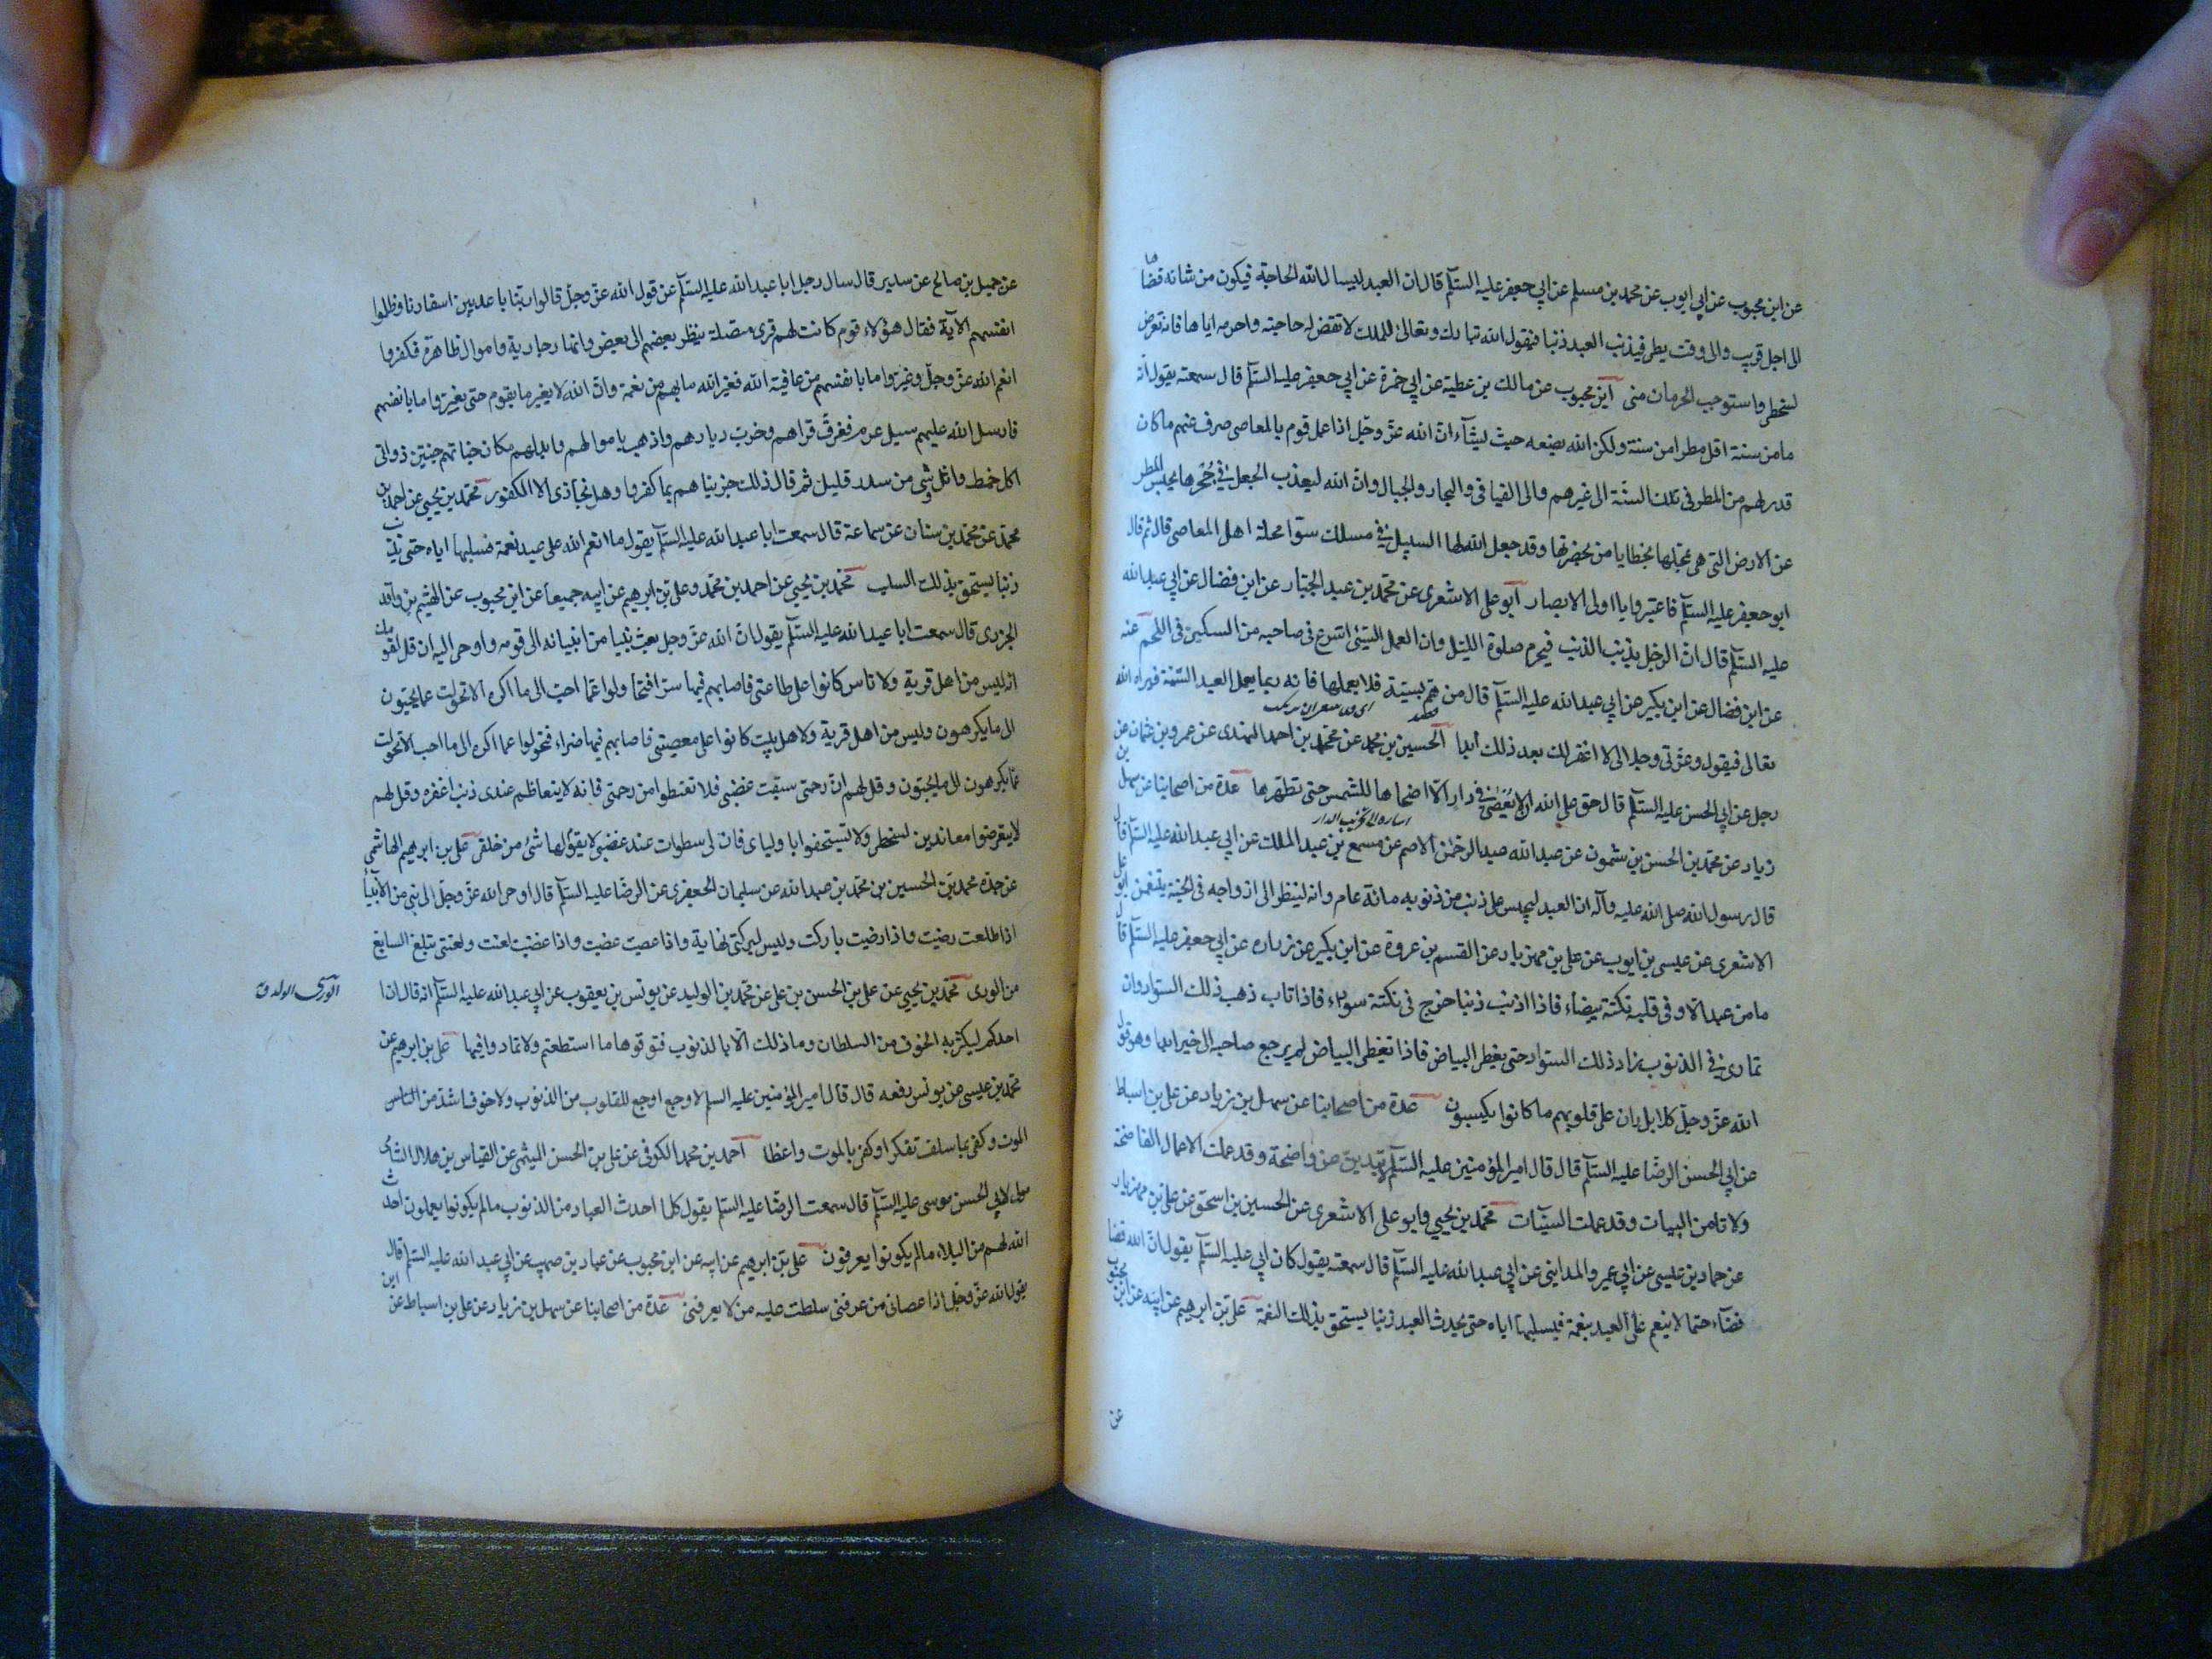 عن ابن محبوب عن ابي ايوب عن محمد بن مسلم عن ابي جعفر عليه السلم قال ان العبد ليسال الله الحاجة فيكون من شانه قضاها
الى اجل قريب والى وقت بطى فيذنب العبد ذنبا فيقول الله تبارك وتعالى للملك لا تقض له حاجته واحرمه اياها فانه تعرض
لسخطى واستوجب الحرمان منى ابن محبوب عن مالك بن عطية عن ابي حمزة عن ابي جعفر عليه السلم قال سمعته يقول انه
ما من سنة اقل مطرا من سنة ولكن الله يضعه حيث يشاء ان الله عز وجل اذا عمل قوم بالمعاصى صرف عنهم ما كان
قدر لهم من المطر فى تلك السنة الى غيرهم والى الفيافى والبحار والجبال وان الله ليعذب الجعل فى جحرها بحبس المطر
عن الارض التى هى بمحلها بخطايا من بحضرتها وقد جعل الله لها السبيل فى مسلك سوا محلة اهل المعاصى قال ثم قال
ابو جعفر عليه السلم فاعتبروا يا اولى الابصار ابو على الاشعرى عن محمد بن عبد الجبار عن ابن فضال عن ابي عبد الله
عليه السلم قال ان الرجل يذنب الذنب فيحرم صلوة الليل وان العمل السيئ اسرع فى صاحبه من السكين فى اللحم عنه
عن ابن فضال عن ابن بكير عن ابي عبد الله عليه السلم قال من هم بسيئة فلا يعملها فانه ربما يعمل العبد السيئة فيراه الله
تعالى فيقول وعزتى وجلالى لا اغفر لك بعد ذلك ابدا الحسين بن محمد عن محمد بن احمد النهدى عن عمرو بن عثمان عن
رجل عن ابي الحسن عليه السلم قال حق على الله ان لا يعصى فى دار الا اضحاها للشمس حتى تطهرها عدة من اصحابنا عن سهل بن
اشارة الى تخريب الدار
زياد عن محمد بن الحسن بن شمون عن عبد الله عبد الرحمن الاصم عن مسمع بن عبد الملك عن ابي عبد الله عليه السلم قال
قال رسول الله صلى الله عليه وآله ان العبد ليحبس على ذنب من ذنوبه مائة عام وانه لينظر الى ازواجه فى الجنة يتنعمن ابو على
الاشعرى عن عيسى بن ايوب عن على بن مهزيار عن القسم بن عروة عن ابن بكير عن زراره عن ابي جعفر عليه السلم قال
ما من عبد الا وفى قلبه نكتة بيضاء فاذا اذنب ذنبا خرج فى نكتة سوداء فاذا تاب ذهب ذلك السواد وان
تمادى فى الذنوب زاد ذلك السواد حتى يغطى البياض فاذا تغطى البياض لم يرجع صاحبه الى خير ابدا وهو قول
الله عز وجل كلا بل ران على قلوبهم ما كانوا يكسبون عدة من اصحابنا عن سهل بن زياد عن على بن اسباط
عن ابي الحسن الرضا عليه السلم قال قال امير المؤمنين عليه السلم لا تبدين عن واضحة وقد عملت الاعمال الفاضحة
ولا تامن البيات وقد عملت السيئات محمد بن يحيى وابو على الاشعرى عن الحسين بن اسحق عن على بن مهزيار
عن حماد بن عيسى عن ابي عمرو المداينى عن ابي عبد الله عليه السلم قال سمعته يقول كان ابي عليه السلم يقول ان الله قضا
قضاء حتما لا ينعم على العبد بنعمة فيسلبها اياه حتى يحدث العبد ذنبا يستحق بذلك النقمة على بن ابرهيم عن ابيه عن ابن محبوب
عن
عن جميل بن صالح عن سدير قال سال رجل ابا عبد الله عليه السلم عن قول الله عز وجل قالوا ربنا باعد بين اسفارنا وظلموا
انفسهم الآية فقال هؤلاء قوم كانت لهم قرى متصلة ينظر بعضهم الى بعض وانهار جارية واموال ظاهرة فكفروا
انعم الله عز وجل وغيروا ما بانفسهم من عافية الله فغير الله ما بهم من نعمة وان الله لا يغير ما بقوم حتى يغيروا ما بانفسهم
فارسل الله عليهم سيل عرم فغرق قراهم وخرب ديارهم واذهب باموالهم وابدلهم مكان جناتهم جنتين ذواتى
اكل خمط واثل وشى من سدر قليل ثم قال ذلك جزيناهم بما كفروا وهل نجازى الا الكفور محمد بن يحيى عن احمد بن
محمد عن محمد بن سنان عن سماعة قال سمعت ابا عبد الله عليه السلم يقول ما انعم الله على عبد نعمة فسلبها اياه حتى يذنب
ذنبا يستحق بذلك السلب محمد بن يحيى عن احمد بن محمد وعلى بن ابرهيم عن ابيه جميعا عن ابن محبوب عن الهيثم بن واقد
الجزرى قال سمعت ابا عبد الله عليه السلم يقول ان الله عز وجل بعث نبيا من انبيائه الى قومه واوحى اليه ان قل لقومك
انه ليس من اهل قرية ولا ناس كانوا على طاعتى فاصابهم فيها سرا فتحولوا عما احب الى ما اكره الا تحولت عما يحبون
الى ما يكرهون وليس من اهل قرية ولا اهل بيت كانوا على معصيتى فاصابهم فيها ضراء فتحولوا عما اكره الى ما احب الا تحولت
عما يكرهون الى ما يحبون وقل لهم ان رحمتى سبقت غضبى فلا تقنطوا من رحمتى فانه لا يتعاظم عندى ذنب اغفره وقل لهم
لا يتعرضوا معاندين لسخطى ولا يستخفوا باوليائى فان لى سطوات عند غضبى لا يقوم لها شئ من خلقى على بن ابرهيم الهاشمى
عن جده محمد بن الحسين بن محمد بن عبد الله عن سليمان الجعفرى عن الرضا عليه السلم قال اوحى الله عز وجل الى نبى من الانبيأ
اذا طلعت رضيت واذا رضيت باركت وليس لبركتى نهاية واذا عصيت غضبت واذا غضبت لعنت ولعنتى تبلغ السابع
من الورى محمد بن يحيى عن على بن الحسن بن على عن محمد بن الوليد عن يونس بن يعقوب عن ابي عبد الله عليه السلم انه قال ان
الورى الولد
احدكم ليكثر به الخوف من السلطان وما ذلك الا بالذنوب فتوقوها ما استطعتم ولا تمادوا فيها على بن ابرهيم عن
محمد بن عيسى عن يونس رفعه قال قال امير المؤمنين عليه السلم لا وجع اوجع للقلوب من الذنوب ولا خوف اشد من الناس
الموت وكفى بما سلف تفكرا وكفى بالموت واعظا احمد بن محمد الكوفى عن على بن الحسن الميثمى عن العباس بن هلال الشامى
مولى لابي الحسن موسى عليه السلم قال سمعت الرضا عليه السلم يقول كلما احدث العباد من الذنوب ما لم يكونوا يعملون احدث
الله لهم من البلاء ما لم يكونوا يعرفون على بن ابرهيم عن ابيه عن ابن محبوب عن عباد بن صهيب عن ابي عبد الله عليه السلم قال
يقول الله عز وجل اذا عصانى من عرفنى سلطت عليه من لا يعرفنى عدة من اصحابنا عن سهل بن زياد عن على بن اسباط عن ابن